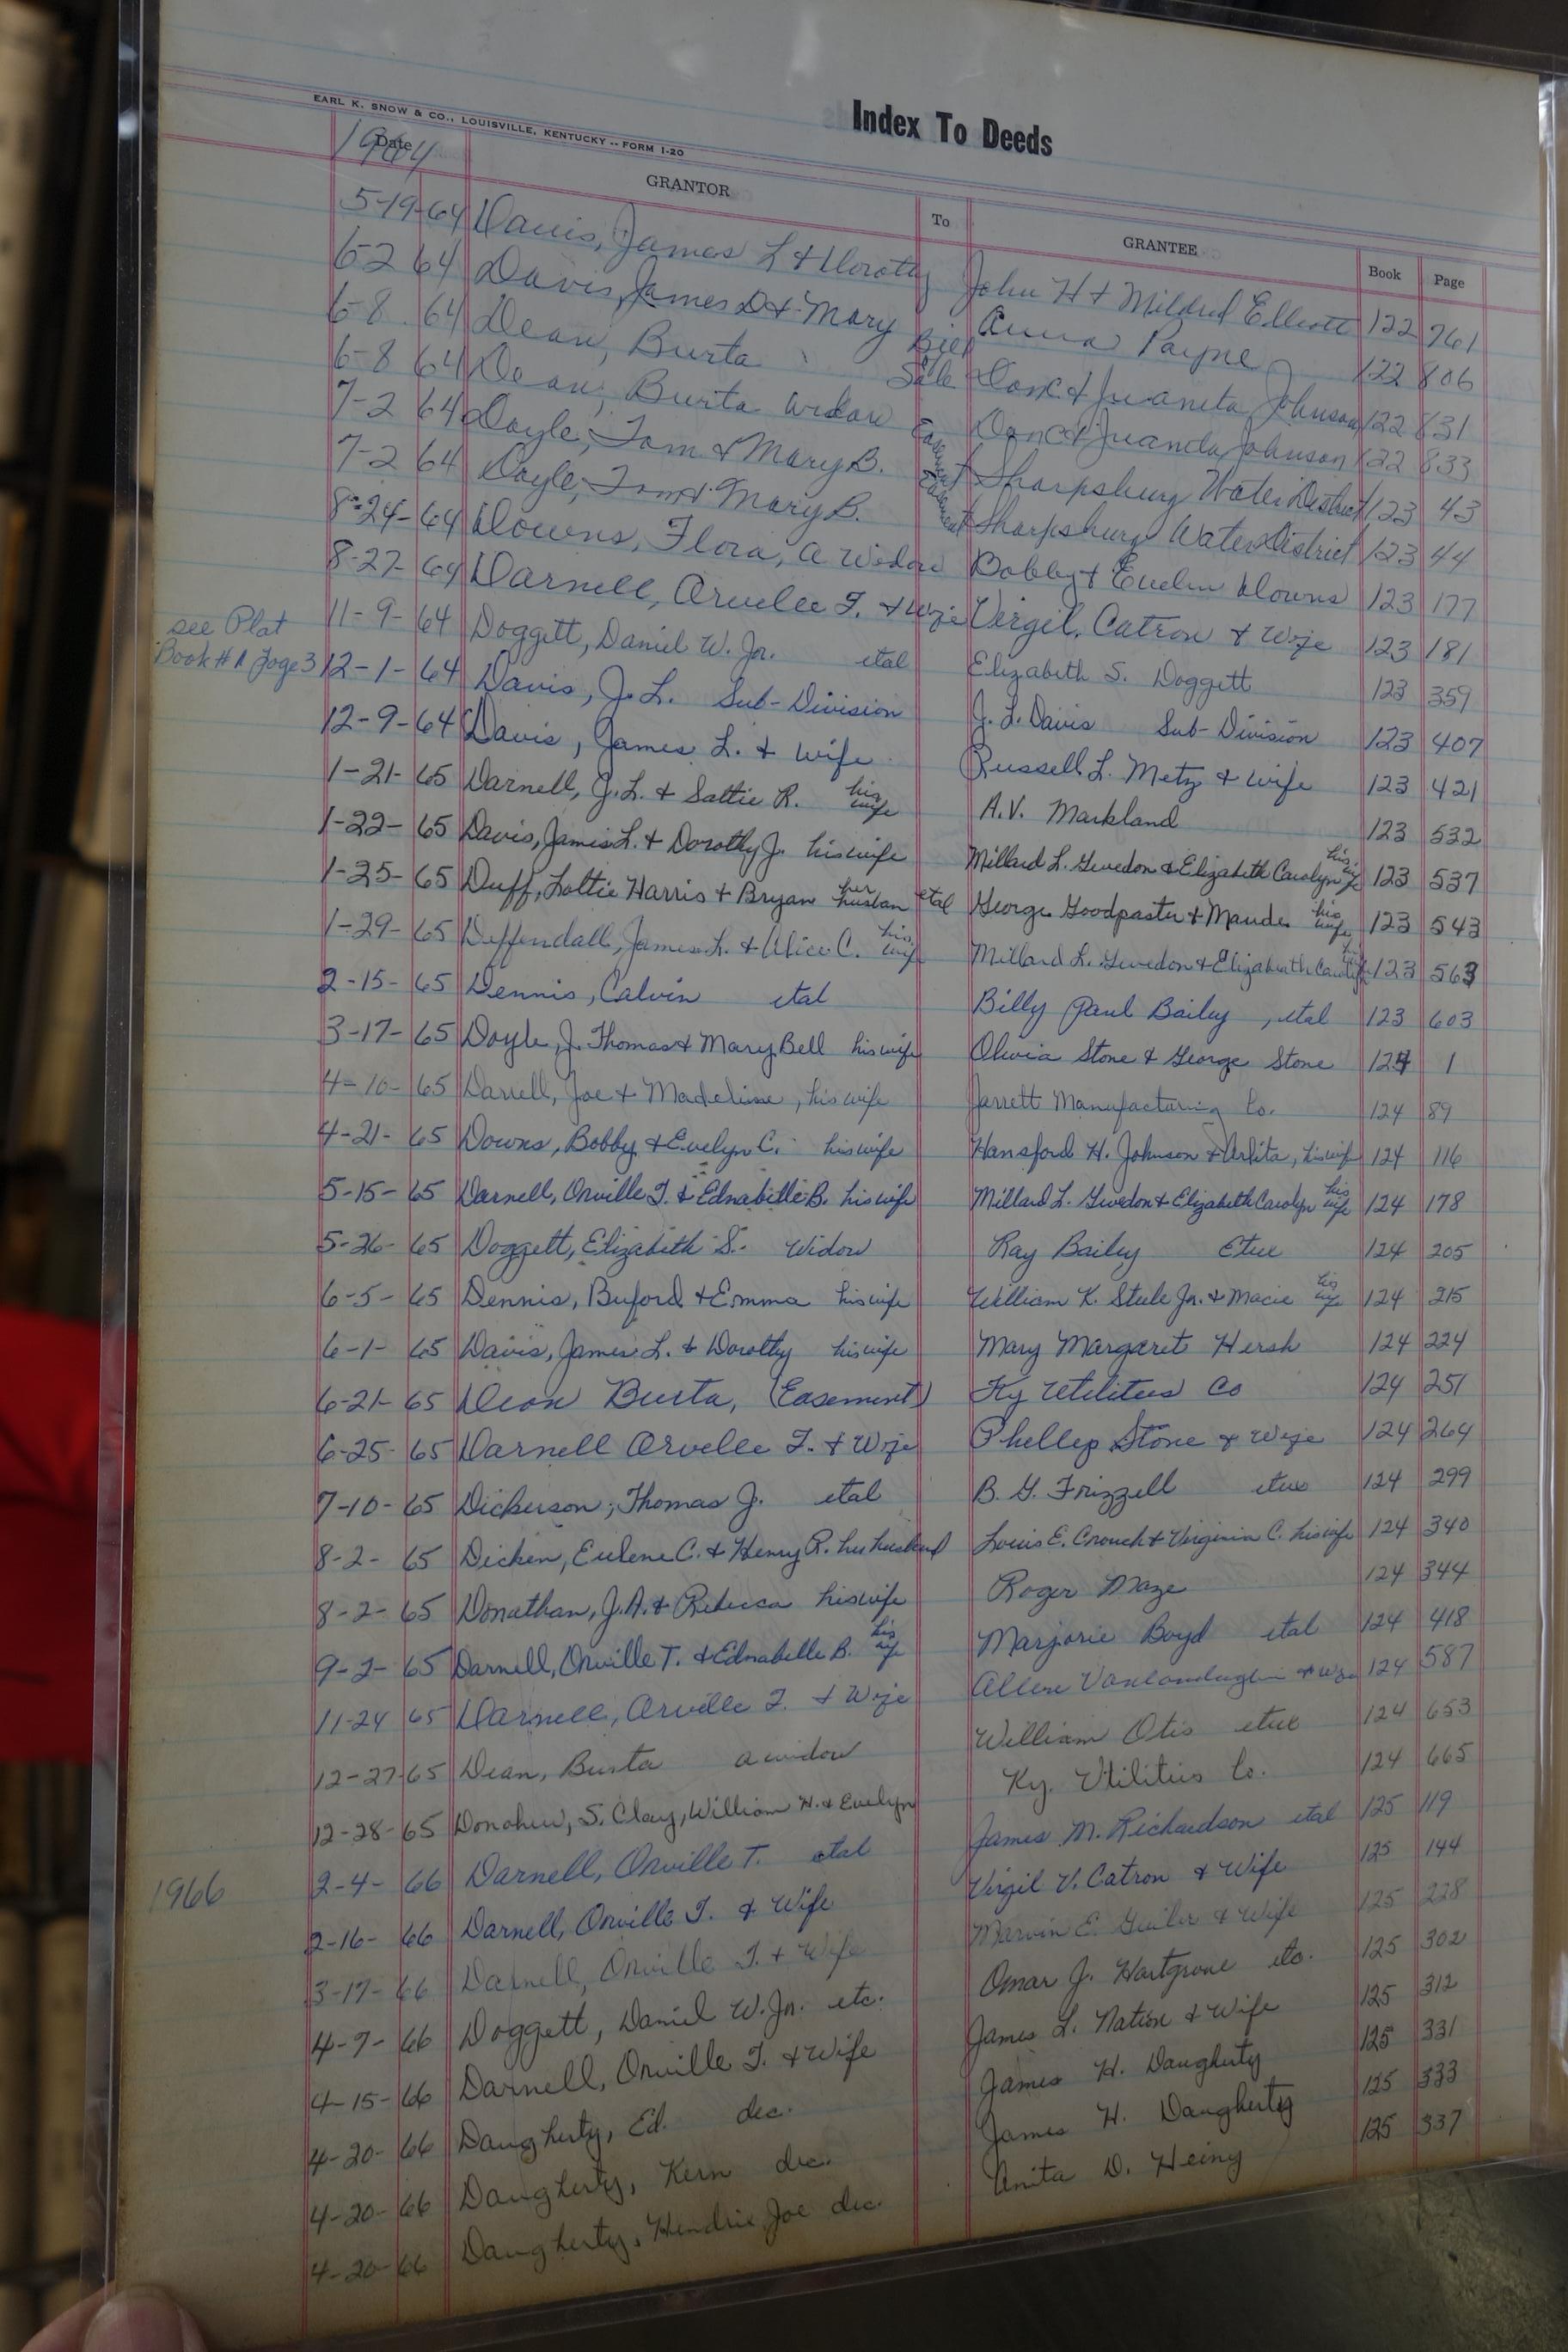 Index To Deeds
EARL K. SNOW & CO., LOUISVILLE, KENTUCKY -- FORM I-20
1964
Date GRANTOR To GRANTEE Book Page
5-19-64 Davis, James L & Dorothy John H & Mildred Elliott 122 761
6-2 64 Davis, James D & Mary Anna Payne 122 806
6-8 64 Dean, Burta Bill Sale Don C & Juanita Johnson 122 831
6-8 64 Dean, Burta Widow Don C & Juanda Johnson 122 833
7-2 64 Doyle, Tom & Mary B. Easement Sharpsburg Water District 123 43
7-2 64 Doyle, Tom & Mary B. Easement Sharpsburg Water District 123 44
8-24-64 Downs, Flora, a Widow Bobby & Evelin Downs 123 177
8-27-64 Darnell, Arvelle T. & Wife Virgil Catron & Wife 123 181
11-9-64 Doggett, Daniel W. Jr. etal Elizabeth S. Doggett 123 359
see Plat Book # A Page 3 12-1-64 Davis, J. L. Sub-Division J. L. Davis Sub-Division 123 407
12-9-64 Davis, James L. & Wife Russell L. Metz & wife 123 421
1-21-65 Darnell, J. L. & Sattie R. his wife A.V. Markland 123 532
1-22-65 Davis, James L. & Dorothy J. his wife Millard L. Gevedon & Elizabeth Carolyn his wife 123 537
1-25-65 Duff, Lottie Harris & Bryan her husban etal George Goodpaster & Maude his wife 123 543
1-29-65 Deffendall, James L. & Alice C. his wife Millard L. Gevedon & Elizabeth Carolyn his wife 123 563
2-15-65 Dennis, Calvin etal Billy Paul Bailey, etal 123 603
3-17-65 Doyle, J. Thomas & Mary Bell his wife Olivia Stone & George Stone 124 1
4-10-65 Darrell, Joe & Madeline, his wife Jarrett Manufacturing Co. 124 89
4-21-65 Downs, Bobby & Evelyn C. his wife Hansford H. Johnson & Arlita, his wife 124 116
5-15-65 Darnell, Orville T. & Ednabelle B. his wife Millard L. Gevedon & Elizabeth Carolyn his wife 124 178
5-26-65 Doggett, Elizabeth S. Widow Ray Bailey Etux 124 205
6-5-65 Dennis, Buford & Emma his wife William K. Steele Jr. & Macie his wife 124 215
6-1-65 Davis, James L. & Dorothy his wife Mary Margaret Hersh 124 224
6-21-65 Dean Burta, (Easement) Ky Utilities Co 124 251
6-25-65 Darnell Arvelle T. & Wife Phellip Stone & Wife 124 264
7-10-65 Dickerson, Thomas J. etal B. G. Frizzell etux 124 299
8-2-65 Dicken, Eulene C. & Henry R. her husband Louis E. Crouch & Virginia C. his wife 124 340
8-2-65 Donathan, J. A. & Rebecca his wife Roger Maze 124 344
9-2-65 Darnell, Orville T. & Ednabelle B. his wife Marjorie Boyd etal 124 418
11-24 65 Darnell, Arville T. & Wife Allene & Wife 124 587
12-27-65 Dean, Burta a widow William Otis etux 124 653
12-28-65 Donohew, S. Clay, William H. & Evelyn Ky. Utilities Co. 124 665
1966 2-4-66 Darnell, Orville T. etal James M. Richardson etal 125 119
2-16-66 Darnell, Orville T. & Wife Virgil V. Catron & Wife 125 144
3-17-66 Darnell, Orville T. & Wife Marvin E. & Wife 125 228
4-7-66 Doggett, Daniel W. Jr. etc. Omar J. Hartgrove etc. 125 302
4-15-66 Darnell, Orville T. & Wife James L. Nation & Wife 125 312
4-20-66 Daugherty, Ed. dec. James H. Daugherty 125 331
4-20-66 Daugherty, Kern dec. James H. Daugherty 125 333
4-20-66 Daugherty, Hendrie Joe dec. Anita D. Heing 125 337